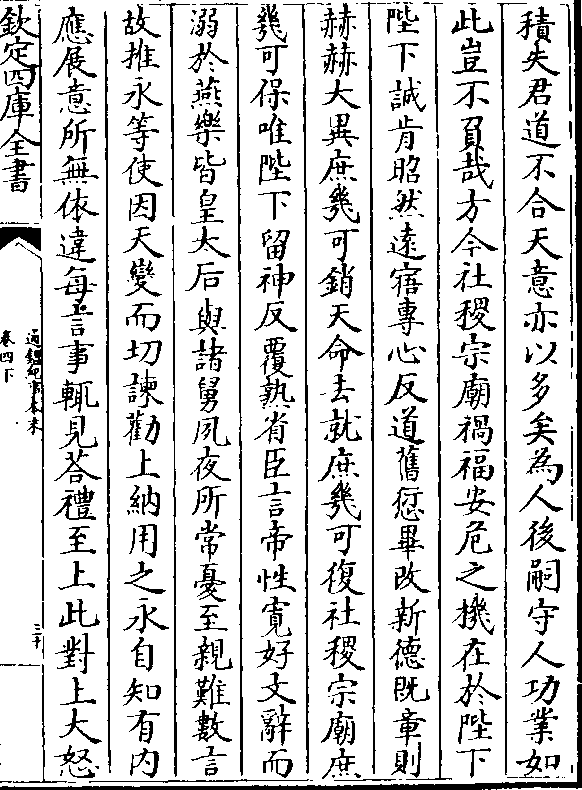 積失君道不合天意亦以多矣為人後嗣守人功業如
此豈不負哉方今社稷宗廟禍福安危之機在於陛下
陛下誠肯昭然遠寤專心反道舊愆畢改新德既章則
赫赫大異庶幾可銷天命去就庶幾可復社稷宗廟庶
幾可保唯陛下留神反覆熟省臣言帝性寬好文辭而
溺於燕樂皆皇太后與諸舅夙夜所常憂至親難數言
故推永等使因天變而切諫勸上納用之永自知有内
應展意所無依違每言事輒見荅禮至上此對上大怒
欽定四庫全書
通鑑紀事本末
卷四下
三十